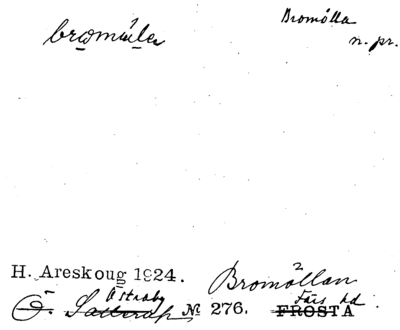 bromüler
Bromölla
n. pr.
H. Areskoug 1924.
Bromöllan
Östraby
Färs hd
Ö. Sallerup № 276. FROSTA